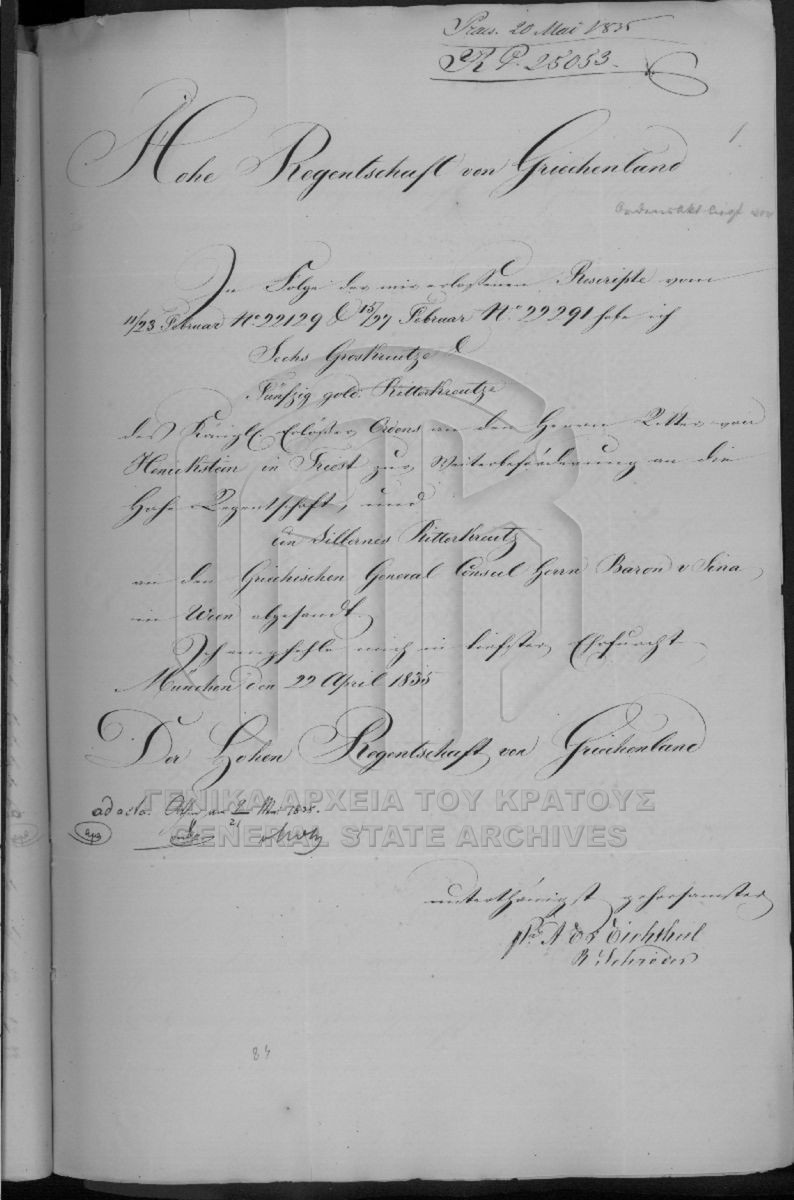 Praes. 20 Mai 1835
R P. 25053.
1
Hohe Regentschaft von Griechenland
Ordensakt liegt vor
In Folge der mir erlassenen Rescripte vom
11/23 Februar No 22129 & 15/27 Februar No 22291 habe ich
Sechs Groskreutze &
Fünfzig gold. Ritterkreutze
des Königl. Erlöser Ordens an den Herrn Ritter von
Henickstein in Triest zur Weiterbeförderung an die
Hohe Regentschaft, und
ein Silbernes Ritterkreutz
an den Griechischen General Consul Herrn Baron v Sina
in Wien abgesandt.
Ich empfehle mich in tiefster Ehrfurcht
München den 22 April 1835
Der Hohen Regentschaft von Griechenland
ad acta. Athen am 9/21 Mai 1835.
ΓΕΝΙΚΑ ΑΡΧΕΙΑ ΤΟΥ ΚΡΑΤΟΥΣ
GENERAL STATE ARCHIVES
unterthänigst gehorsamster
Eichthal
Schröder
84